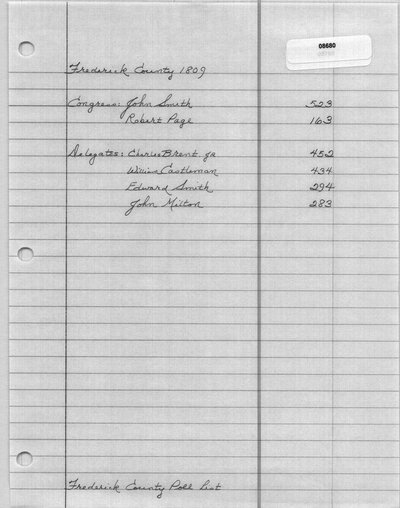 08680
Frederick County 1809
Congress: John Smith 523
Robert Page 163
Delegates: Charles Brent Jr 452
William Castleman 434
Edward Smith 294
John Milton 283
Frederick County Poll List